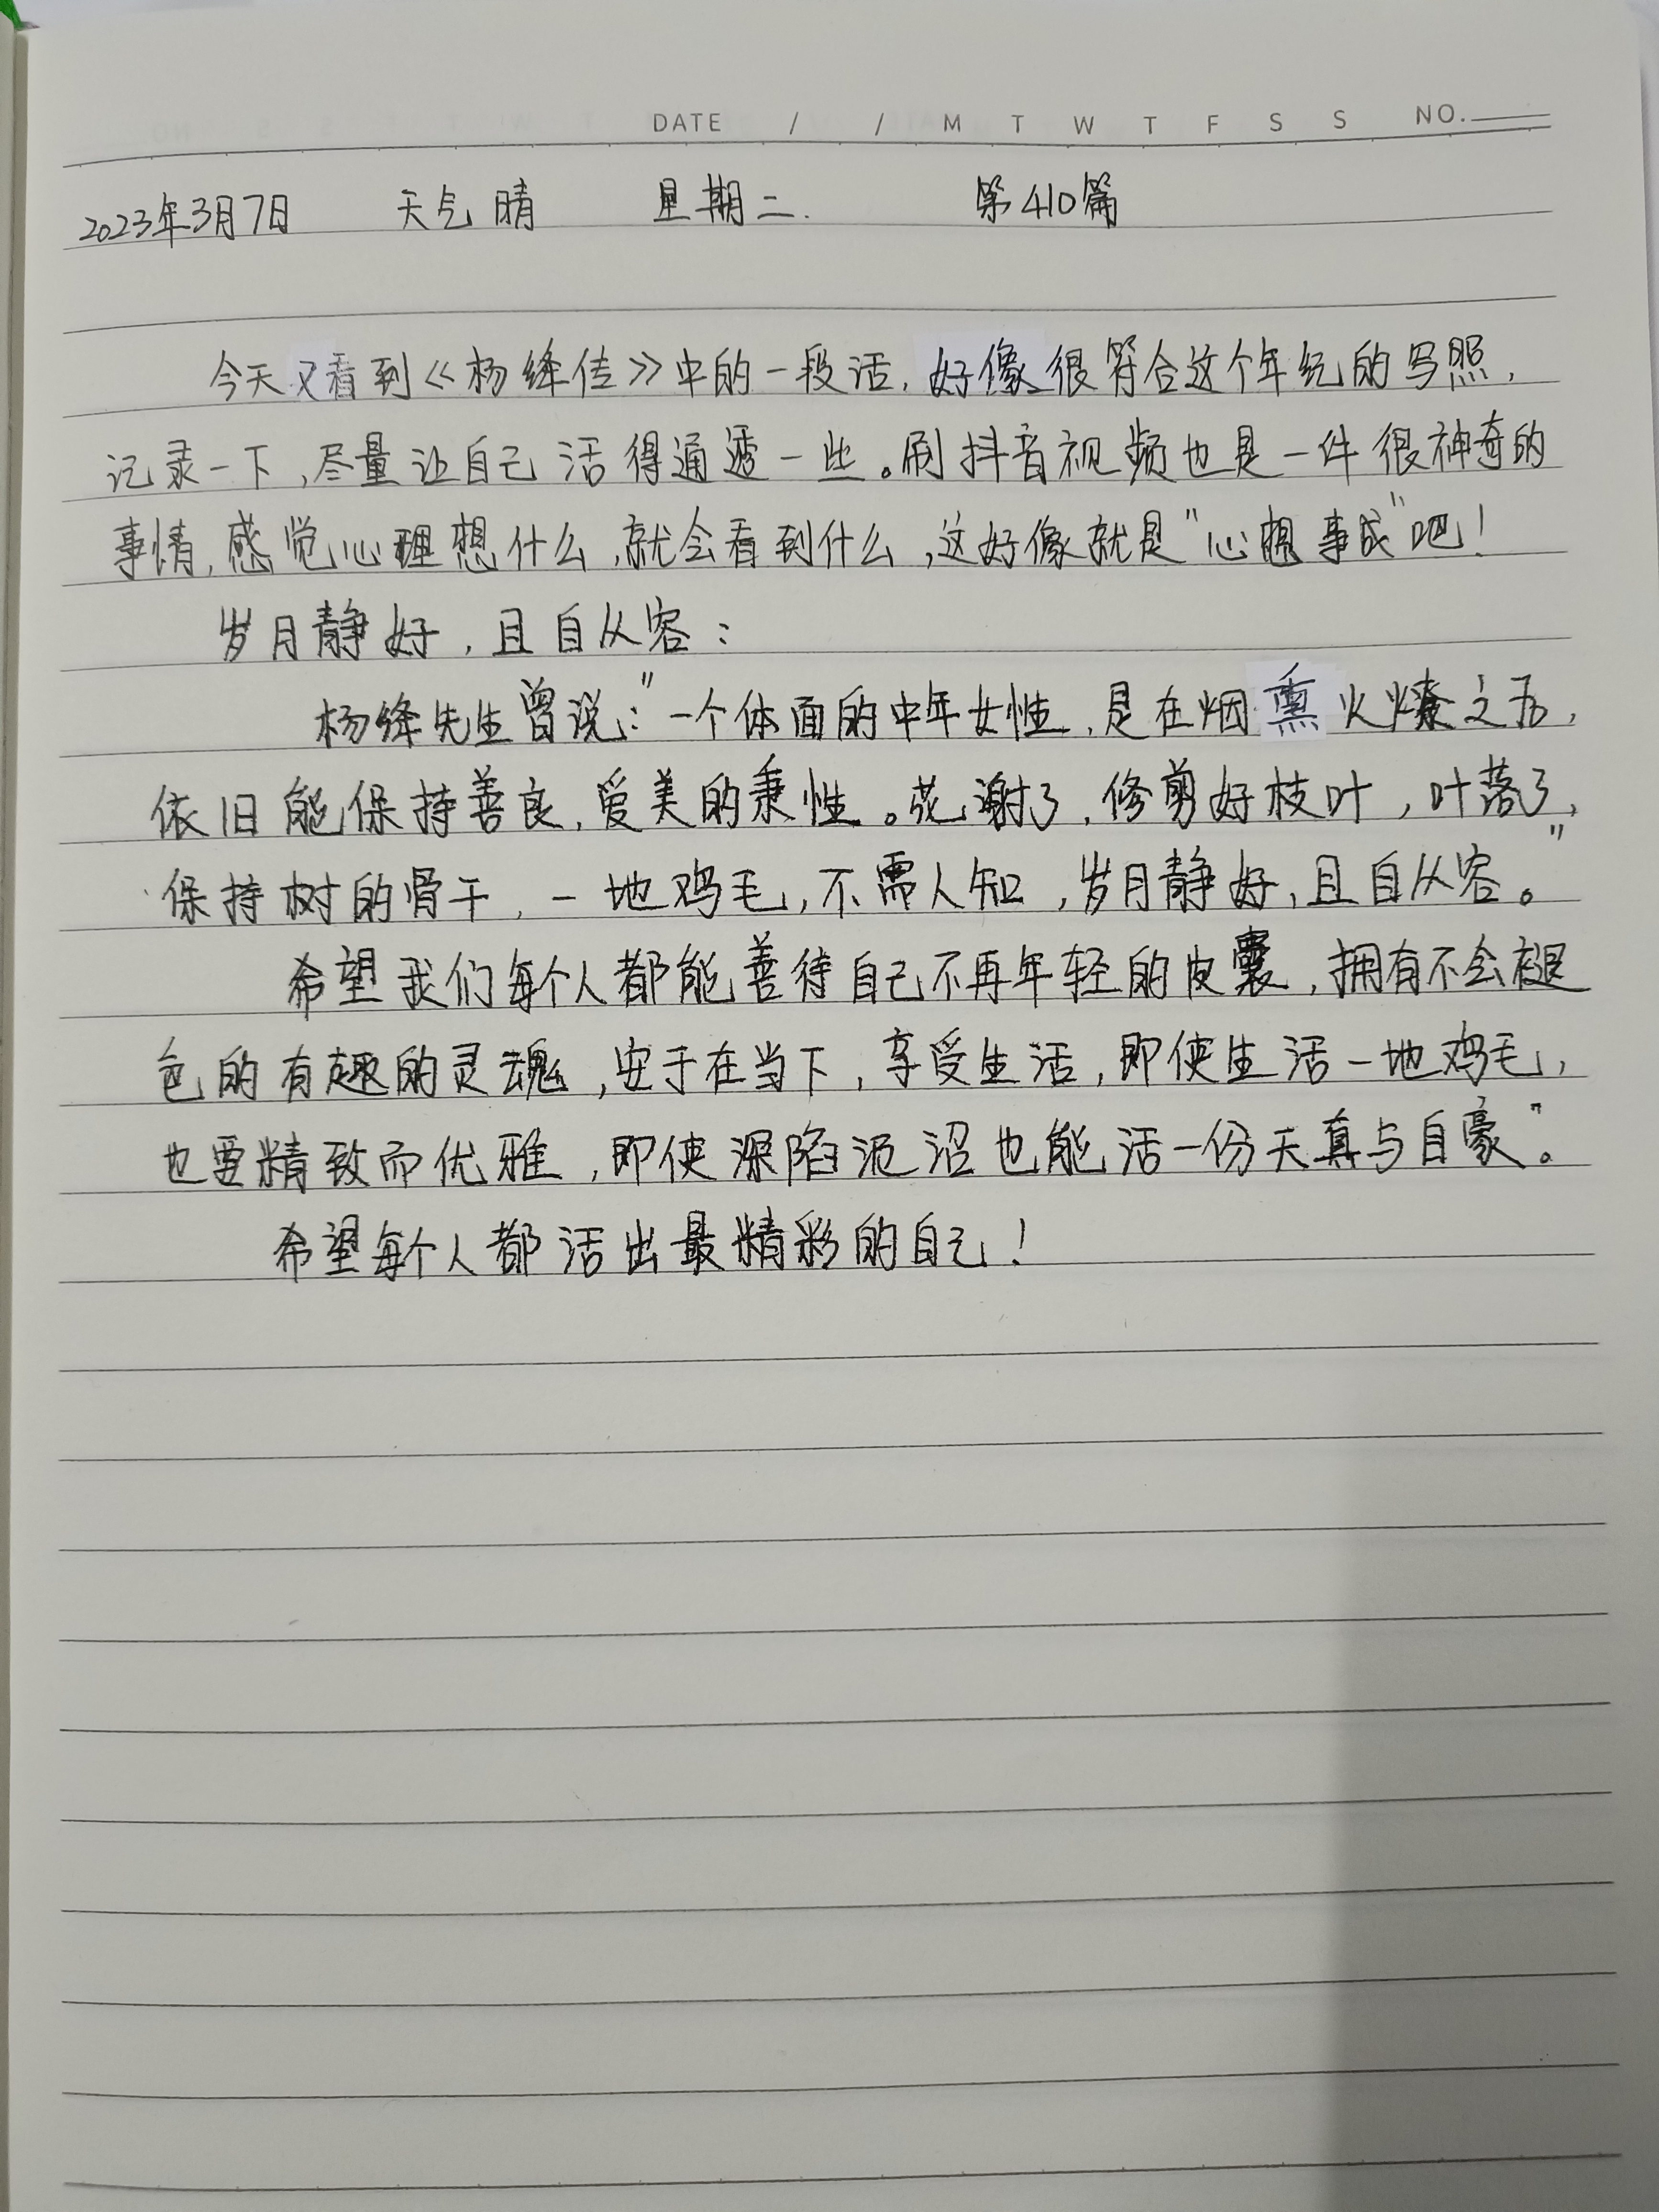 DATE / / M T W T F S S NO.
2023年3月7日 天气晴 星期二. 第410篇
今天又看到《杨绛传》中的一段话,好像很符合这个年纪的写照,
记录一下,尽量让自己活得通透一些。刷抖音视频也是一件很神奇的
事情,感觉心理想什么,就会看到什么,这好像就是"心想事成"吧!
岁月静好,且自从容:
杨绛先生曾说:"一个体面的中年女性,是在烟熏火燎之后,
依旧能保持善良,爱美的秉性。花谢了,修剪好枝叶,叶落了,
保持树的骨干,一地鸡毛,不需人知,岁月静好,且自从容。"
希望我们每个人都能善待自己不再年轻的皮囊,拥有不会褪
色的有趣的灵魂,安于在当下,享受生活,即使生活一地鸡毛,
也要精致而优雅,即使深陷泥沼也能活一份天真与自豪"。
希望每个人都活出最精彩的自己!